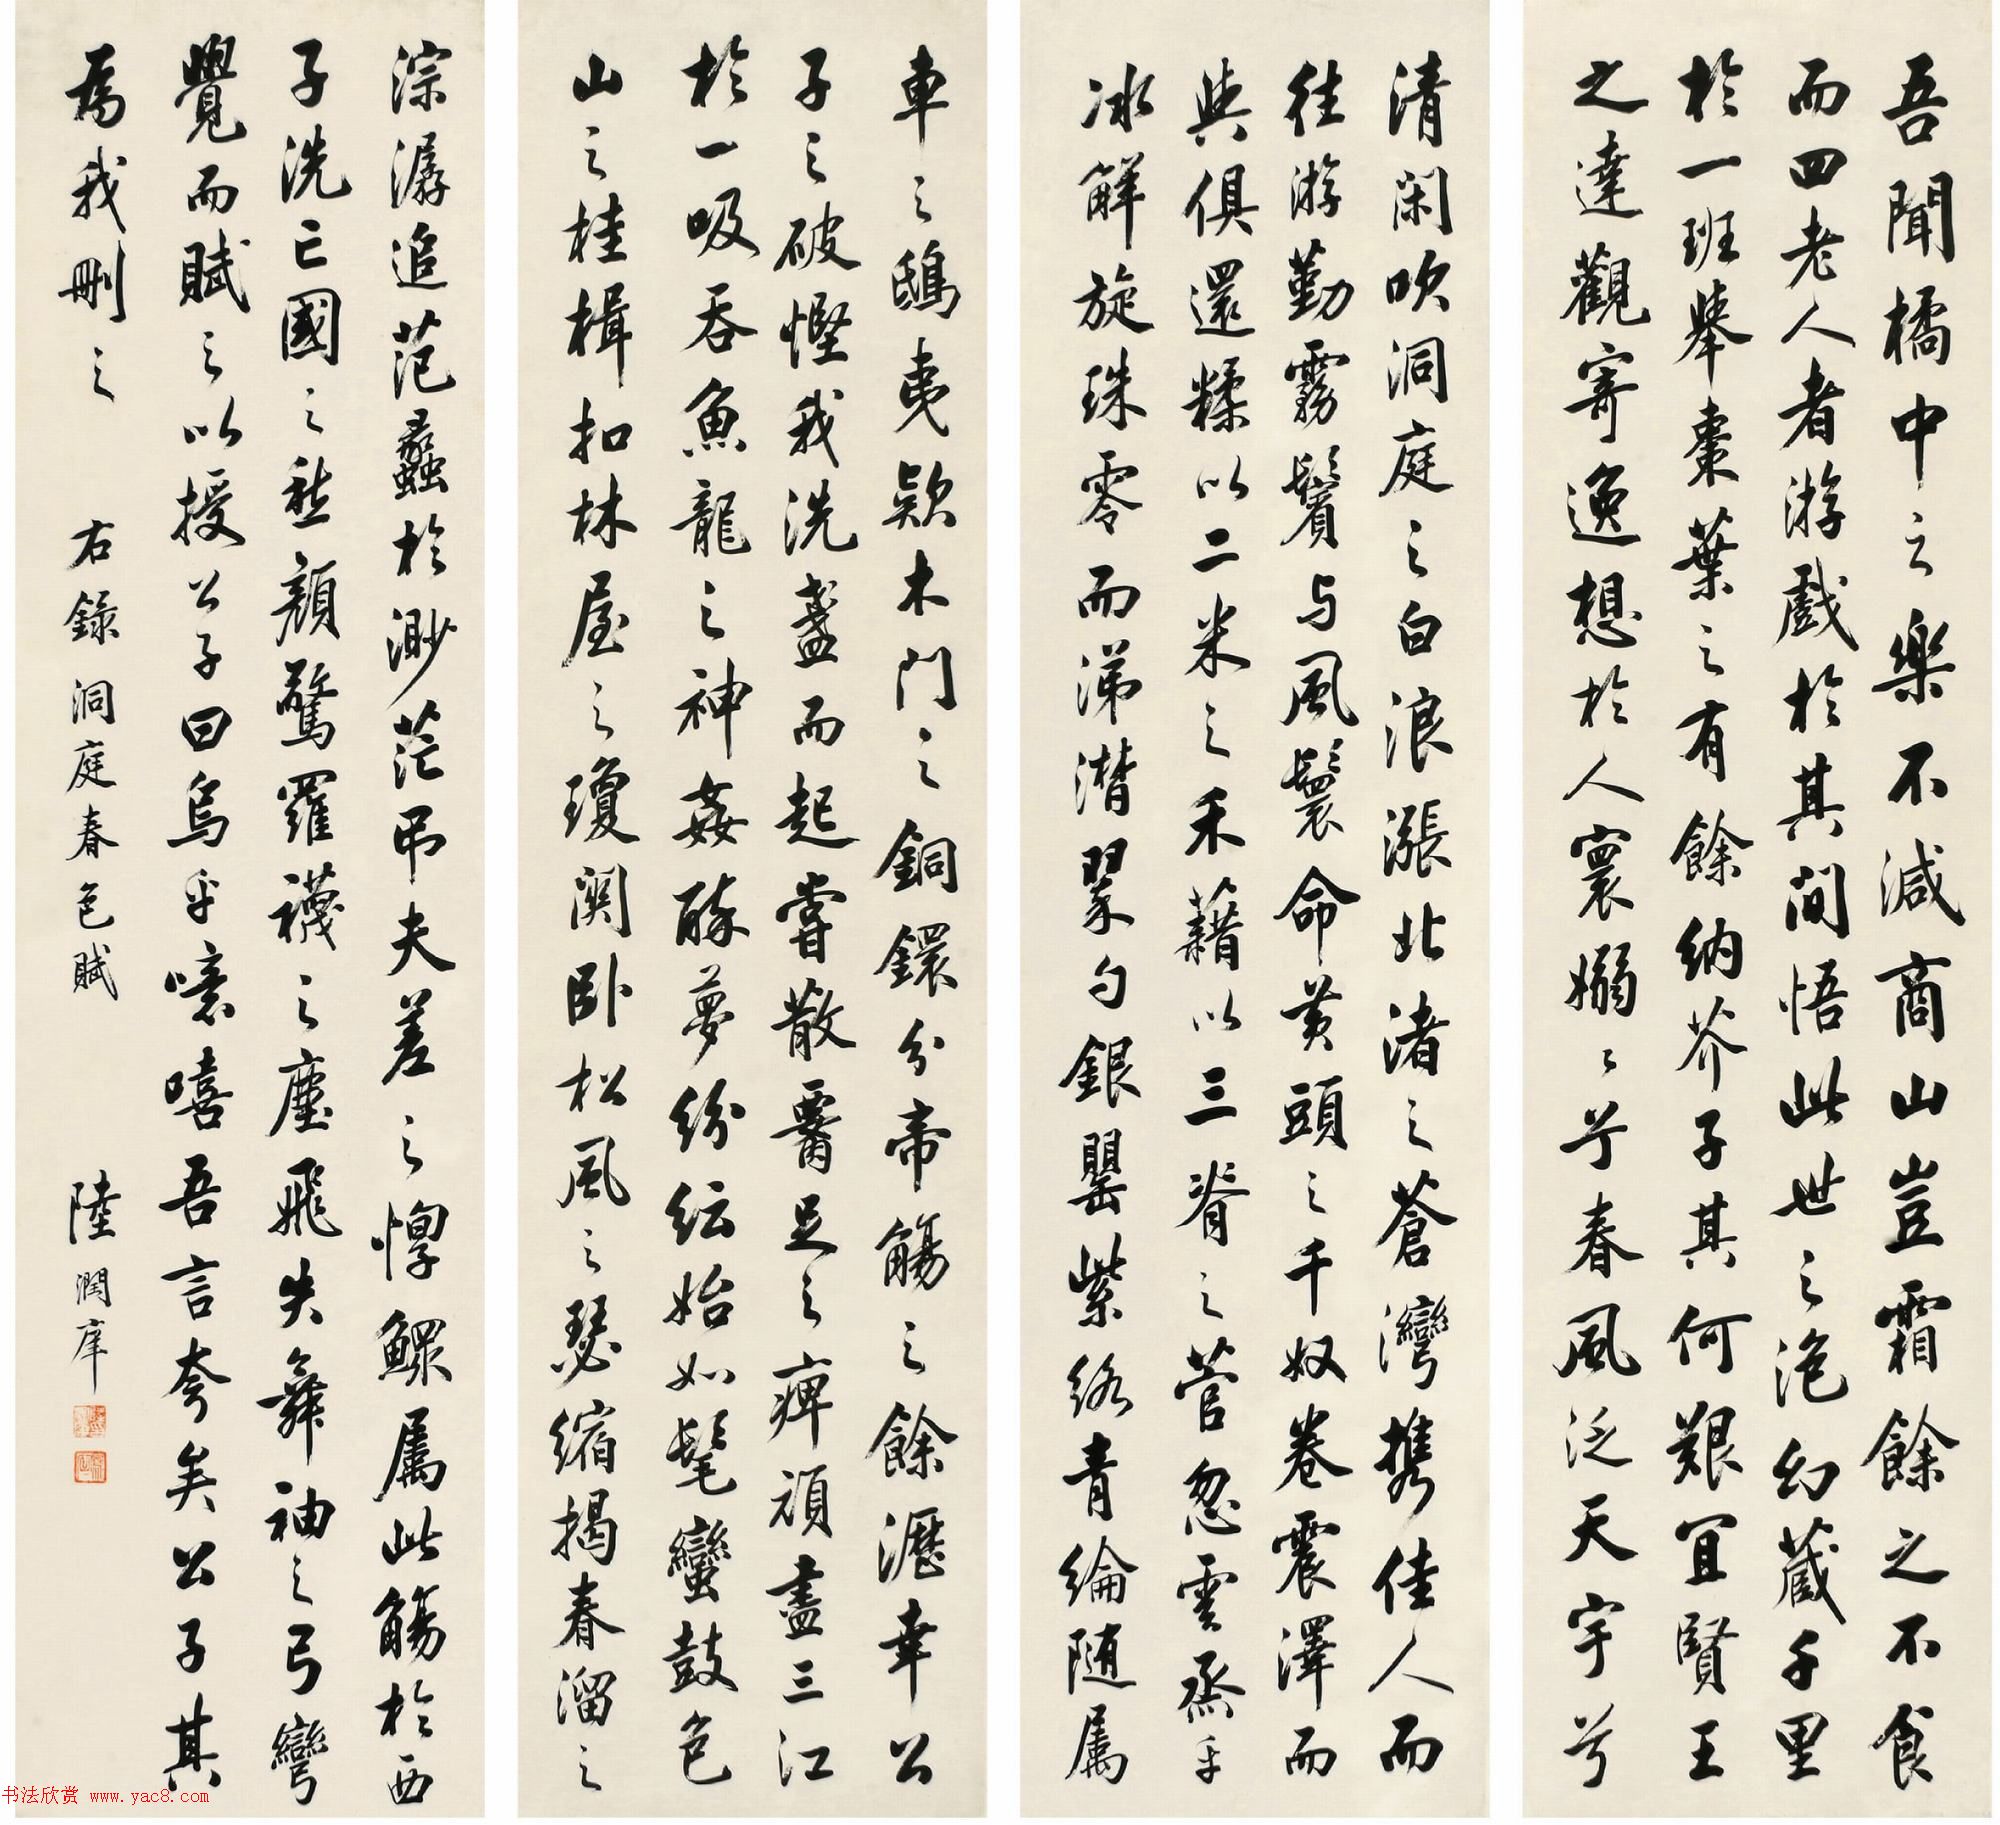 吾聞橘中之樂不減商山豈霜餘之不食
而四老人者游戲於其間悟此世之泡幻藏千里
於一班舉棗葉之有餘納芥子其何艱宜賢王
之達觀寄逸想於人寰嫋〻兮春風泛天宇兮
清閑吹洞庭之白浪漲北渚之蒼灣攜佳人而
往游勤霧鬢与風鬟命黃頭之千奴卷震澤而
與俱還糅以二米之禾藉以三脊之菅忽雲烝乎
冰解旋珠零而涕潸翠勺銀罌紫絡青綸隨屬
車之鴟夷款木門之銅鐶分帝觴之餘瀝幸公
子之破慳我洗盞而起嘗散腰足之痺頑盡三江
於一吸吞魚龍之神姦醉夢紛紜始如髦蠻鼓包
山之桂楫扣林屋之瓊關臥松風之瑟縮揭春溜之
淙潺追范蠡於渺茫弔夫差之惸鰥屬此觴於西
子洗亡國之愁顏驚羅襪之塵飛失舞袖之弓彎
覺而賦之以授公子曰烏乎噫嘻吾言夸矣公子其
為我刪之 右錄洞庭春色賦 陸潤庠
书法欣赏 www.yac8.com